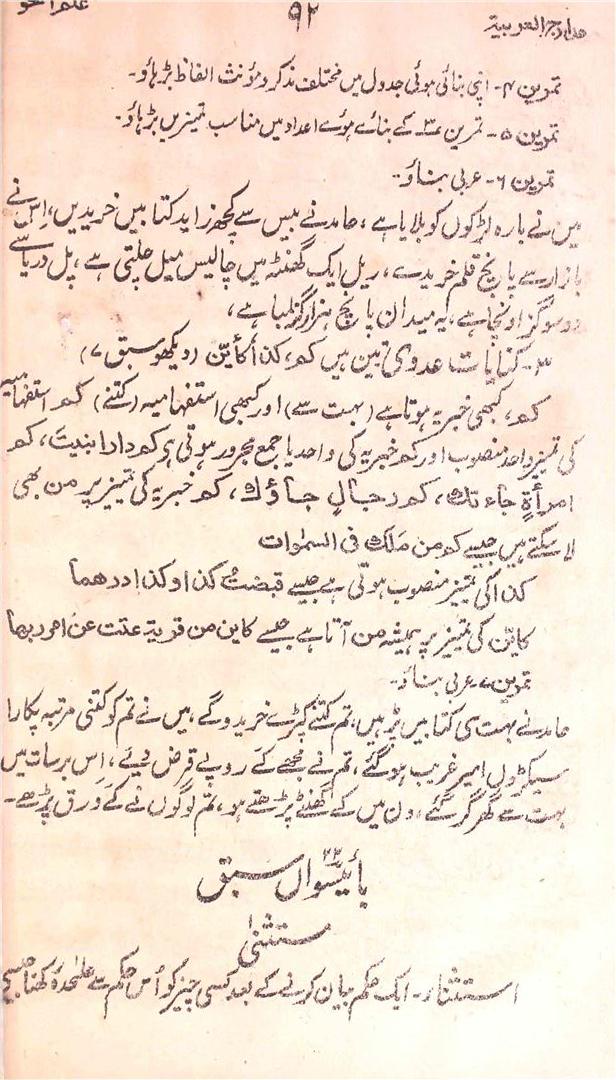 مدارج العربیة ۹۲ علم النحو
تمرین ۴- اپنی بنائی ہوئی جدول میں مختلف مذکر و مؤنث الفاظ بڑہاؤ۔
تمرین ۵- تمرین ۳ کے بنائے ہوئے اعداد میں مناسب تمیزیں بڑہاؤ۔
تمرین ۶- عربی بناؤ۔
میں نے بارہ لڑکوں کو بلایا ہے، حامد نے بیس سے کچھ زاید کتابیں خریدیں، اس نے
بازار سے پانچ قلم خریدے، ریل ایک گھنٹہ میں چالیس میل چلتی ہے، پل دریا سے
دو سو گز اونچا ہے، یہ میدان پانچ ہزار گز لمبا ہے،
۳- کنایات عددی تین ہیں کم، کذا کأیّن (دیکھو سبق ۷)
کم، کبھی خبریہ ہوتا ہے (بہت سے) اور کبھی استفہامیہ (کتنے) کم استفہامیہ
کی تمیز واحد منصوب اور کم خبریہ کی واحد یا جمع مجرور ہوتی ہے کم دارا بنیتَ، کم
امرأةٍ جاءتك، کم رجالٍ جاؤك، کم خبریہ کی تمیز پر من بھی
لا سکتے ہیں جیسے کم من مَلَك فی السمٰوات
کذا کی تمیز منصوب ہوتی ہے جیسے قبضتُ کذا و کذا درهما
کایّن کی تمیز پر ہمیشہ من آتا ہے جیسے کاین من قریة عتت عن امر ربها
تمرین ۷- عربی بناؤ۔
حامد نے بہت سی کتابیں پڑہیں، تم کتنے کپڑے خریدو گے، میں نے تم کو کتنی مرتبہ پکارا
سیکڑوں امیر غریب ہو گئے، تم نے مجھے کَے روپے قرض دیے، اِس برسات میں
بہت سے گھر گر گئے، دن میں کَے گھنٹے پڑھتے ہو، تم لوگوں نے کَے ورق پڑھے۔
بائیسواں سبق ۲۲
مستثنیٰ
استثناء- ایک حکم بیان کرنے کے بعد کسی چیز کو اُس حکم سے علٰحدہ کہنا جیسے